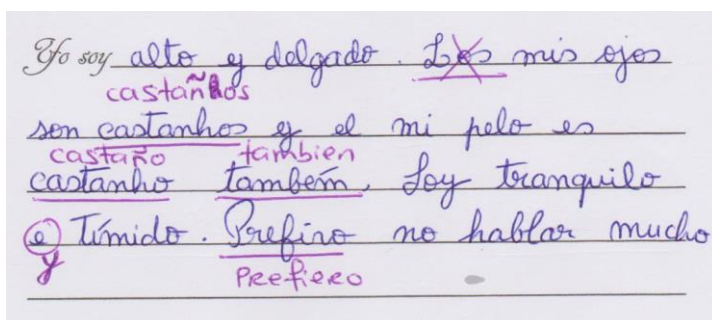 Yo soy alto y delgado. Los mis ojos
castaños
son castanhos y el mi pelo es
castaño tambien
castanho tambem. Soy tranquilo
e Tímido. Prefiro no hablar mucho
y Prefiero